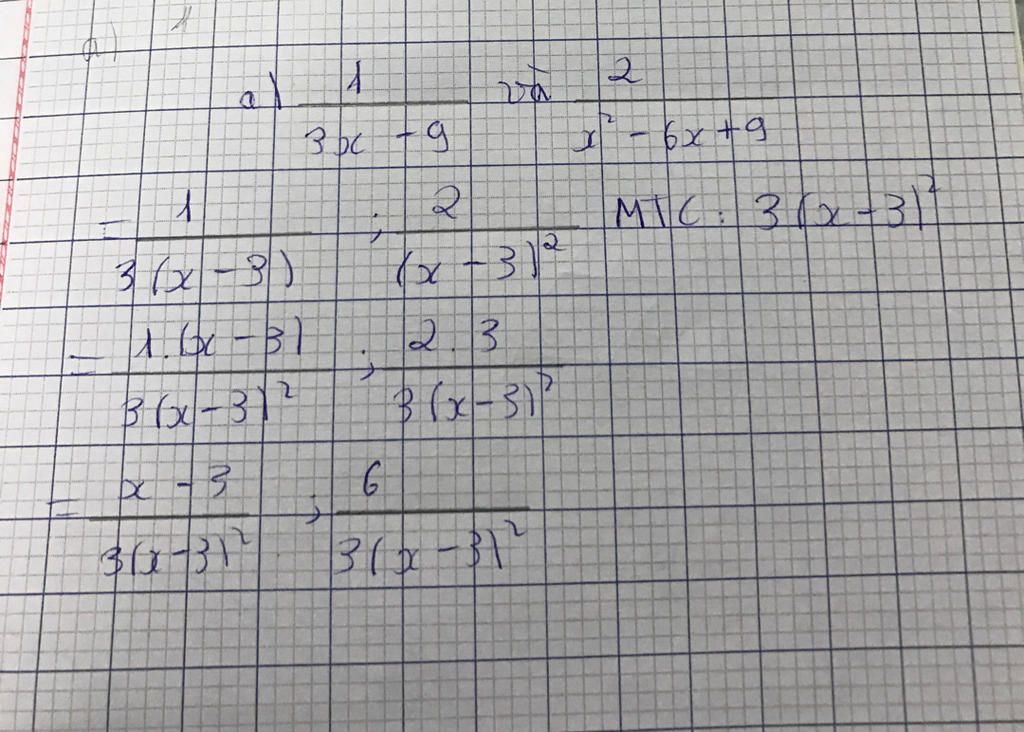 a) 1
a) 1/(3x - 9) và 2/(x² - 6x + 9)
= 1/(3(x - 3)) ; 2/(x - 3)² MTC: 3(x - 3)²
= 1.(x - 3)/(3(x - 3)²) ; 2.3/(3(x - 3)²)
= (x - 3)/(3(x - 3)²) ; 6/(3(x - 3)²)